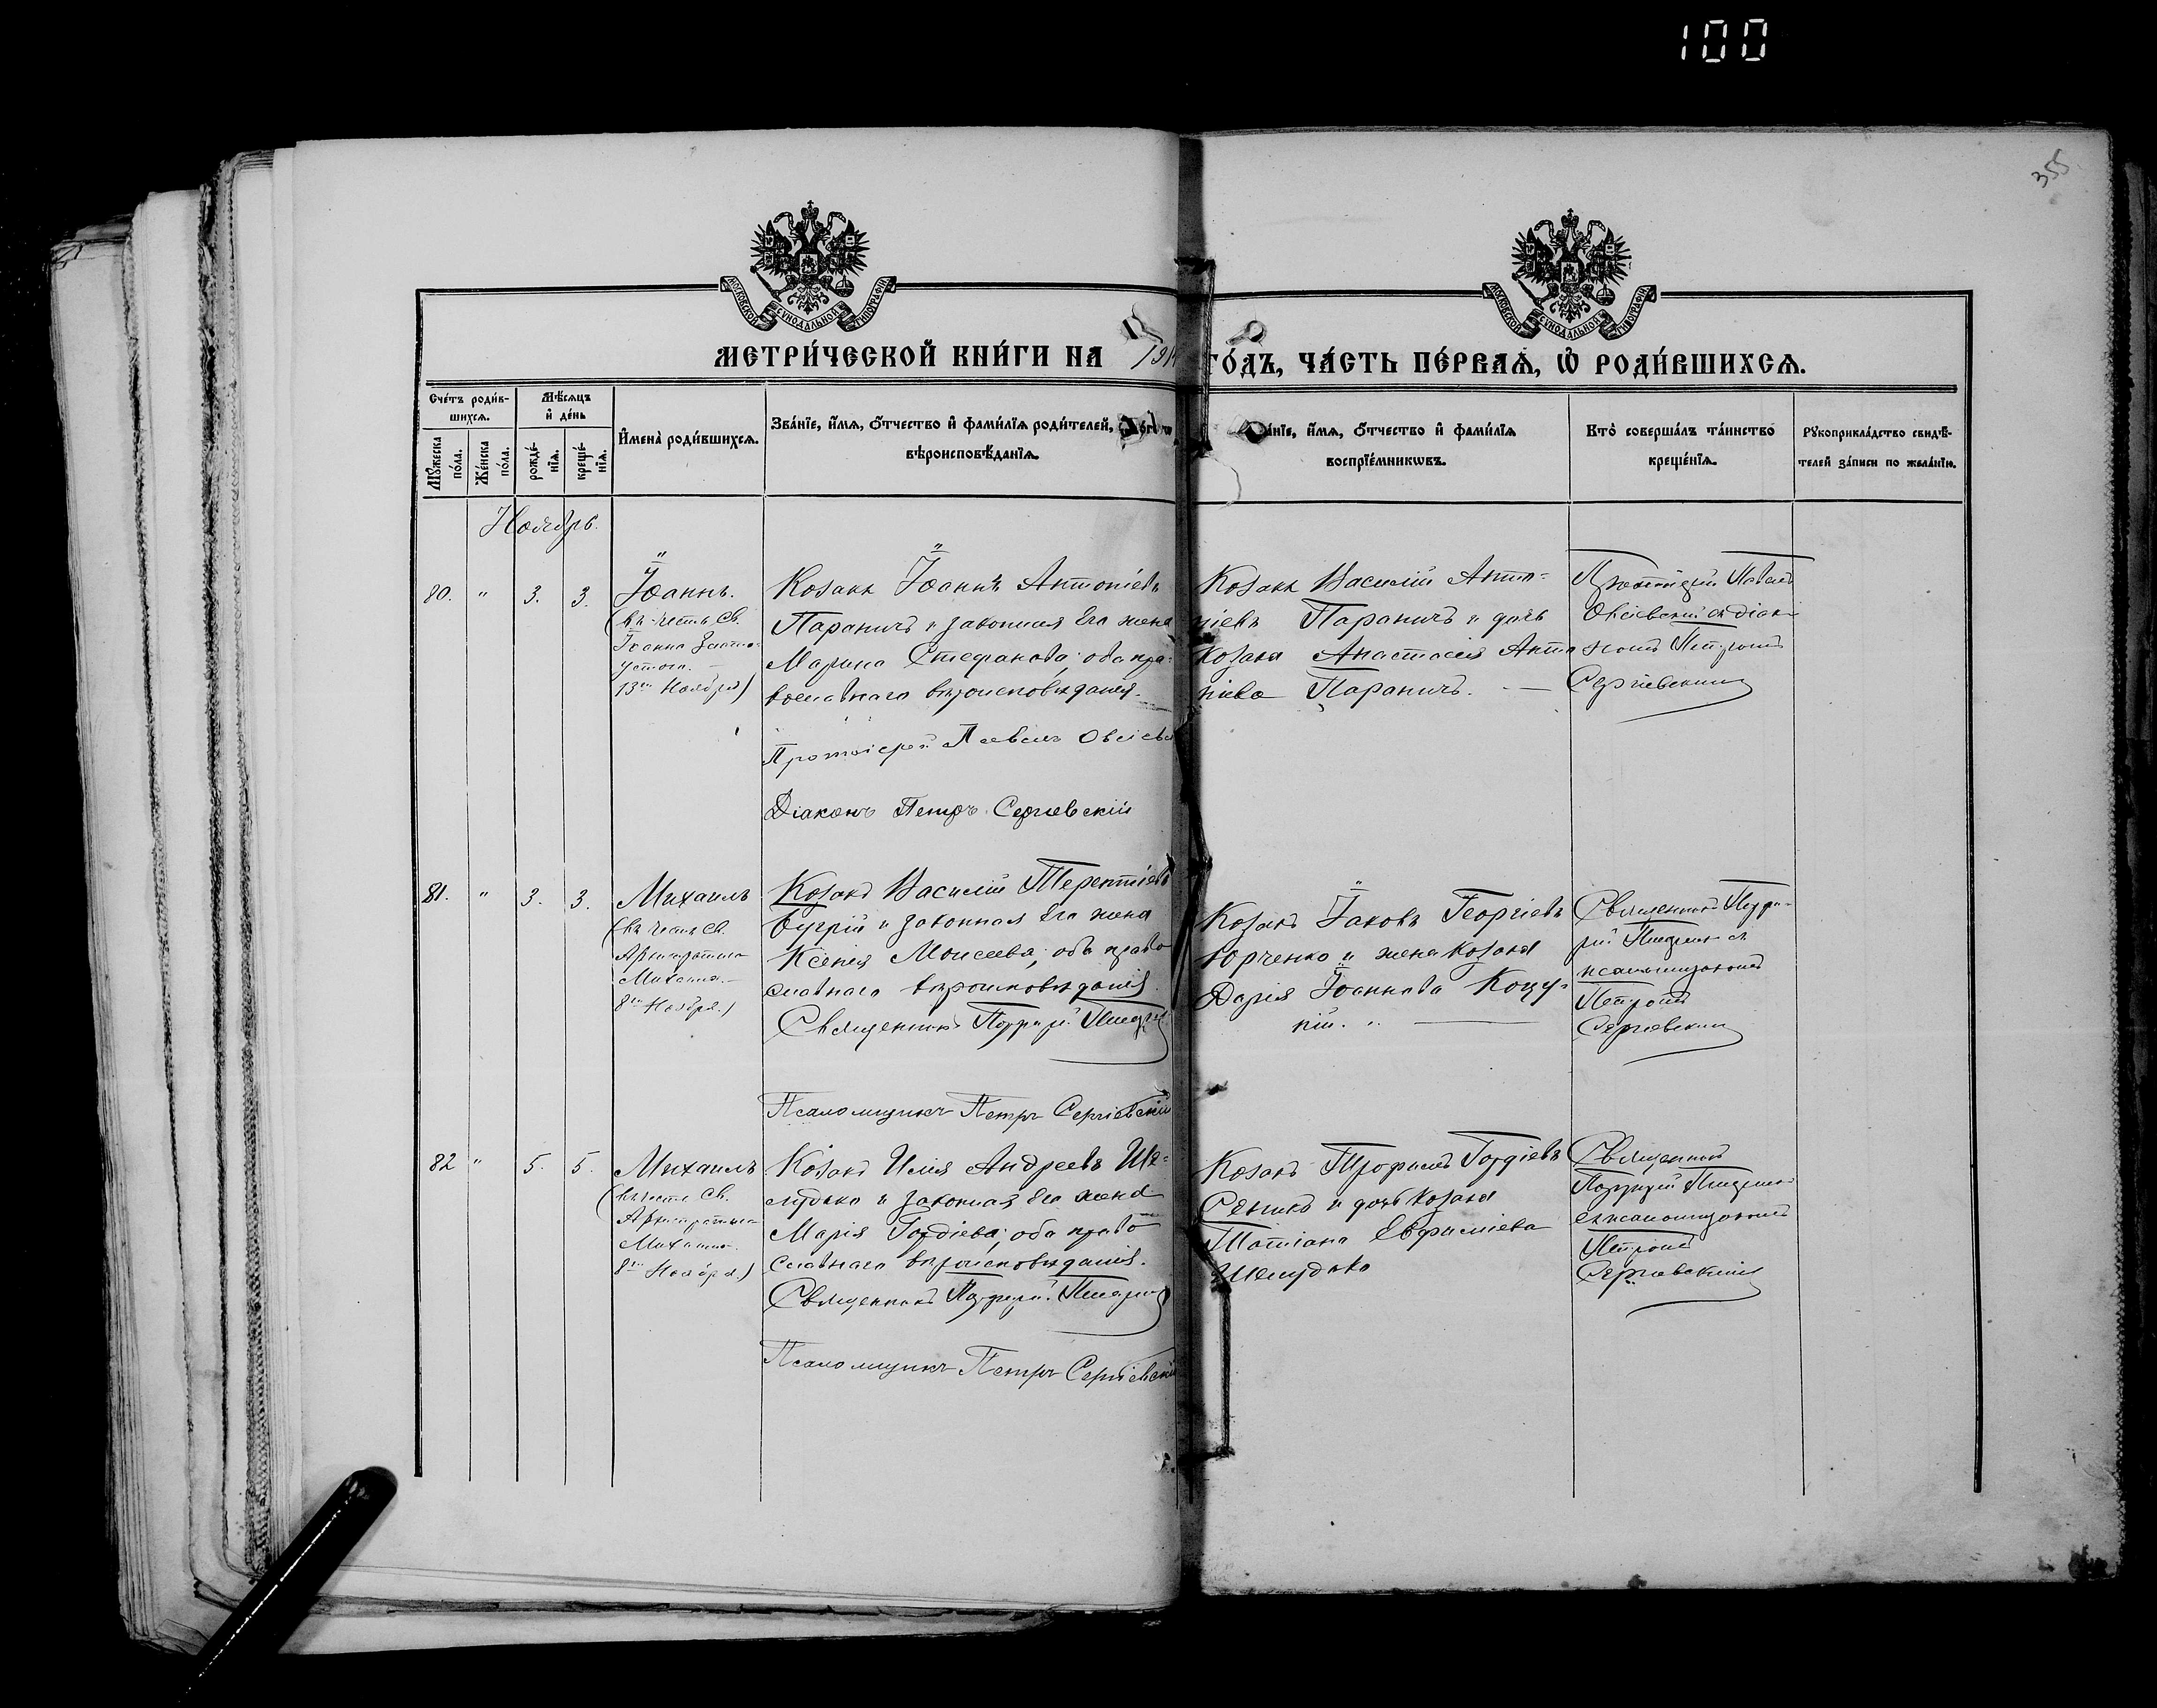 100
355
МОСКОВСКОЙ СѴНОДАЛЬНОЙ ТИПОГРАФІИ
МОСКОВСКОЙ СѴНОДАЛЬНОЙ ТИПОГРАФІИ
МЕТРИ́ЧЕСКОЙ КНИ́ГИ НА 191
ГО́ДЪ, ЧА́СТЬ ПЕ́РВАѦ, Ѡ҆ РОДИ́ВШИХСѦ.
Сче́тъ роди́в-
шихсѧ.
Мѣ́сѧцъ
и҆ де́нь
Мꙋ́жеска
по́ла.
Же́нска
по́ла.
рожде́-
нїѧ.
креще́-
нїѧ.
И҆мена̀ роди́вшихсѧ.
Зва́нїе, и҆́мѧ, ѻ҆́тчество и҆ фами́лїѧ роди́телей,
вѣроисповѣ́данїѧ.
а́нїе, и҆́мѧ, ѻ҆́тчество и҆ фами́лїѧ
воспрїе́мникѡвъ.
Кто̀ соверша́лъ та́инство
креще́нїѧ.
Рꙋкоприкла́дство свидѣ́-
телей за́писи по жела́нїю.
Ноябрь.
80. " 3. 3.
Іоаннъ.
(въ честь Св.
Іоанна Злато-
устого.
13го Ноября)
Козакъ Іоаннъ Антоніевъ
Параничъ и законная его жена
Марина Стефанова; оба пра-
вославнаго вѣроисповѣданія.
Протоіерей Павелъ Овсіевс
Діаконъ Петръ Сергіевскій
Козакъ Василій Анто-
ніевъ Параничъ и дочь
козака Анастасія Анто
ніева Параничъ.
Протоіерей Павелъ
Овсіевскій съ діа-
кономъ Петромъ
Сергіевскимъ
81. " 3. 3.
Михаилъ
(въ честь Св.
Архистратига
Михаила.
8го Ноября.)
Козакъ Василій Терентіевъ
Бугрій и законная его жена
Ксенія Моисеева; оба право
славнаго вѣроисповѣданія.
Священникъ Порфирій
Псаломщикъ Петръ Сергіевскій
Козакъ Іаковъ Георгіевъ
Юрченко и жена козака
Дарія Іоаннова Коцу-
ній.
Священникъ Порфи-
рій съ
псаломщикомъ
Петромъ
Сергіевскимъ
82 " 5. 5.
Михаилъ
(въ честь Св.
Архистратига
Михаила.
8го Ноября.)
Козакъ Илія Андреевъ Ше-
лудько и законная его жена
Марія Гордіева; оба право
славнаго вѣроисповѣданія.
Священникъ Порфирій
Псаломщикъ Петръ Сергіевскій
Козакъ Трофимъ Гордіевъ
Сенько и дочь козака
Татіана Евфиміева
Шелудько
Священникъ
Порфирій
съ псаломщикомъ
Петромъ
Сергіевскимъ